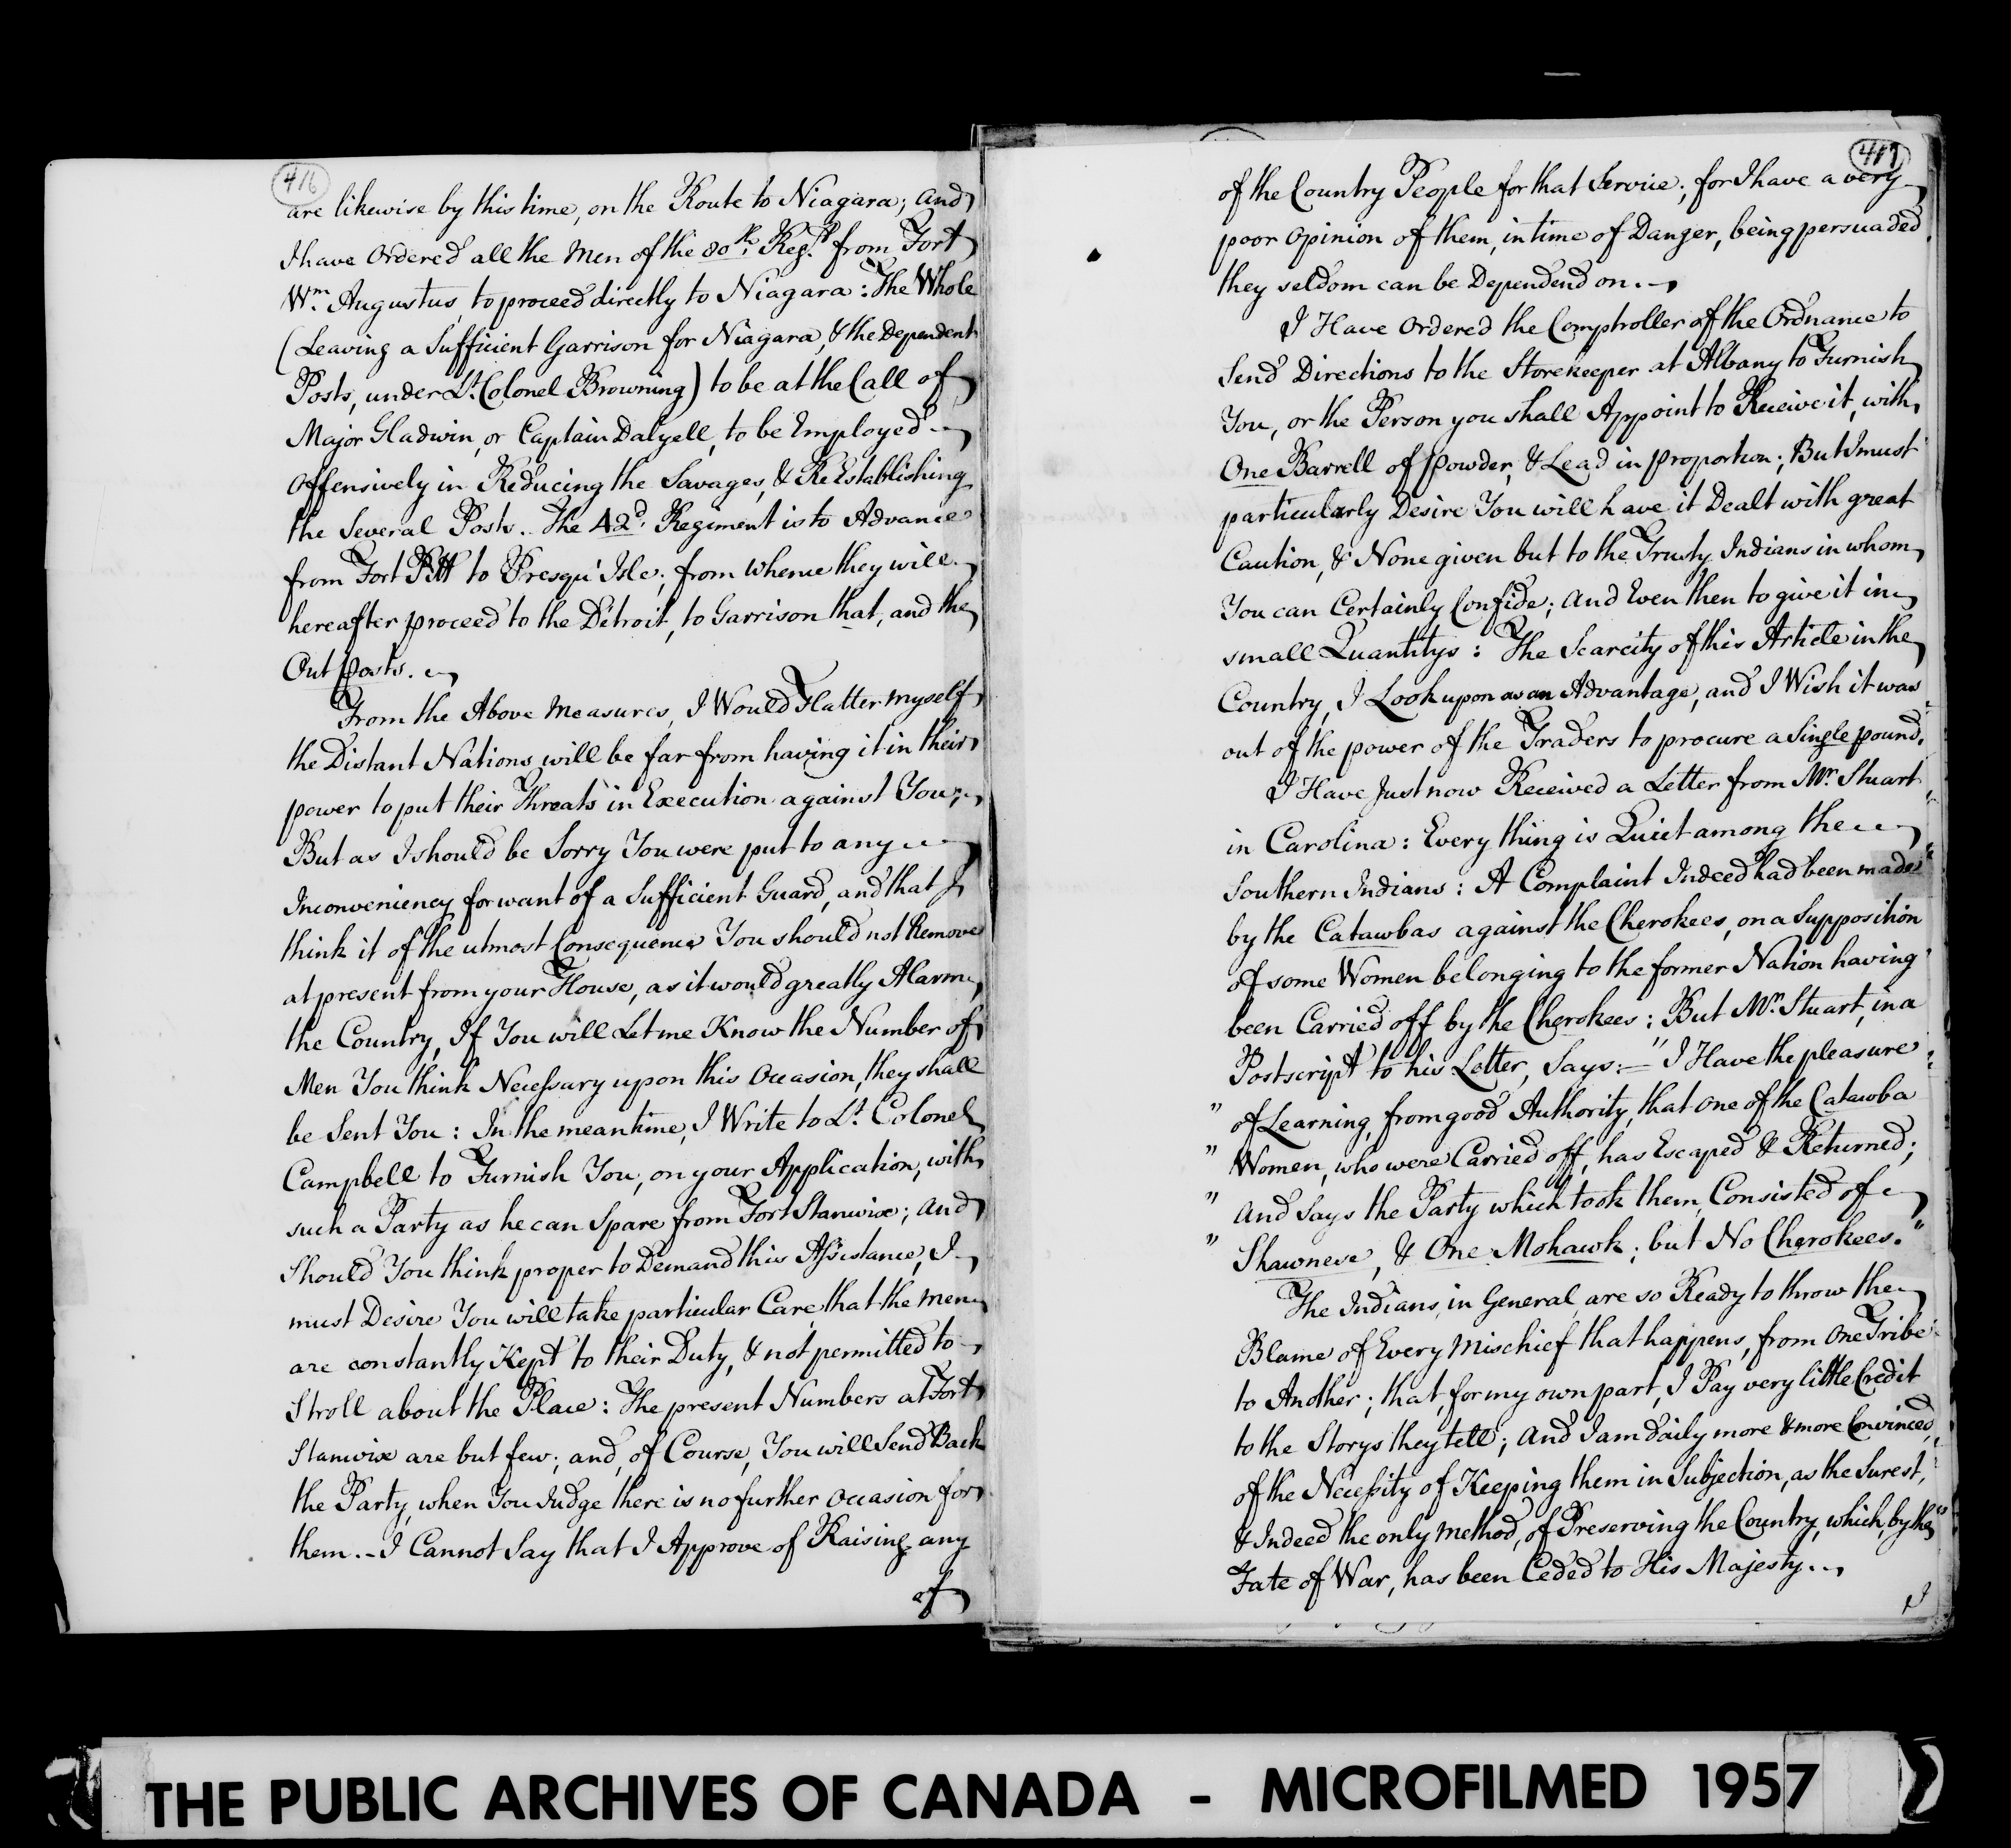 416
are likewise by this time, on the Route to Niagara; and
I have Ordered all the Men of the 80th. Regt. from Fort
Wm. Augustus, to proceed directly to Niagara: The Whole
(Leaving a Sufficient Garrison for Niagara, & the Dependent
Posts, under Lt. Colonel Browning) to be at the Call of
Major Gladwin, or Captain Dalyell, to be Employed
Offensively in Reducing the Savages, & ReEstablishing
the Several Posts. The 42d. Regiment is to Advance
from Fort Pitt to Presqu' Isle; from whence they will
hereafter proceed to the Détroit, to Garrison that, and the
Out posts.
From the Above Measures, I Would Flatter myself
the Distant Nations will be far from having it in their
power to put their Threats in Execution against You;
But as I should be Sorry You were put to any
Inconveniency for want of a Sufficient Guard, and that I
think it of the utmost Consequence You should not Remove
at present from your House, as it would greatly Alarm
the Country, If You will Let me Know the Number of
Men You think Necessary upon this Occasion, they shall
be Sent You: In the meantime, I Write to Lt. Colonel
Campbell to Furnish You, on your Application, with
such a Party as he can Spare from Fort Stanwix; and
Should You think proper to Demand this Assistance, I
must Desire You will take particular Care, that the Men
are constantly Kept to their Duty, & not permitted to
Stroll about the Place: The present Numbers at Fort
Stanwix are but few; and, of Course, You will Send Back
the Party, when You Judge there is no further Occasion for
them. - I Cannot Say that I Approve of Raising any
of
417
of the Country People for that Service; for I have a very
poor Opinion of them, in time of Danger, being persuaded
they seldom can be Dependend on.
I Have Ordered the Comptroller of the Ordnance to
Send Directions to the Storekeeper at Albany to Furnish
You, or the Person you shall Appoint to Receive it, with
One Barrell of Powder, & Lead in proportion; But I must
particularly Desire You will have it Dealt with great
Caution, & None given but to the Trusty Indians in whom
You can Certainly Confide; and Even then to give it in
small Quantitys: The Scarcity of this Article in the
Country, I Look upon as an Advantage, and I Wish it was
out of the power of the Traders to procure a Single pound.
I Have Just now Received a Letter from Mr. Stuart
in Carolina: Every thing is Quiet among the
Southern Indians: A Complaint Indeed had been made
by the Catawbas against the Cherokees, on a Supposition
of some Women belonging to the former Nation having
been Carried off by the Cherokees: But Mr. Stuart, in a
Postscript to his Letter, Says:— "I Have the pleasure
" of Learning, from good Authority, that one of the Catawba
" Women, who were Carried off, has Escaped & Returned;
" and Says the Party which took them, Consisted of
" Shawnese, & One Mohawk; but No Cherokees."
The Indians, in General, are so Ready to throw the
Blame of Every Mischief that happens, from One Tribe
to Another; that, for my own part, I Pay very little Credit
to the Storys they tell; and I am daily more & more Convinced,
of the Necessity of Keeping them in Subjection, as the Surest,
& Indeed the only Method, of Preserving the Country, which, by the
Fate of War, has been Ceded to His Majesty.
I
THE PUBLIC ARCHIVES OF CANADA - MICROFILMED 1957